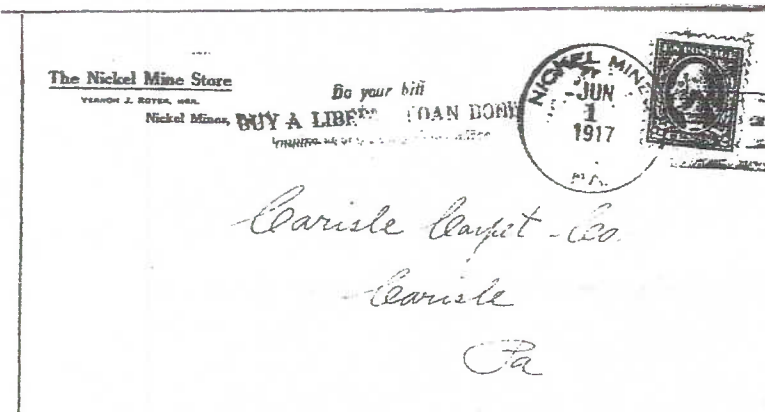 The Nickel Mine Store
VERNON J. ROYER, MGR.
Nickel Mines,
Do your bit!
BUY A LIBERTY LOAN BOND
NICKEL MINES
JUN
1
1917
PA.
U.S. POSTAGE
Carisle Carpet - Co.
Carisle
Pa